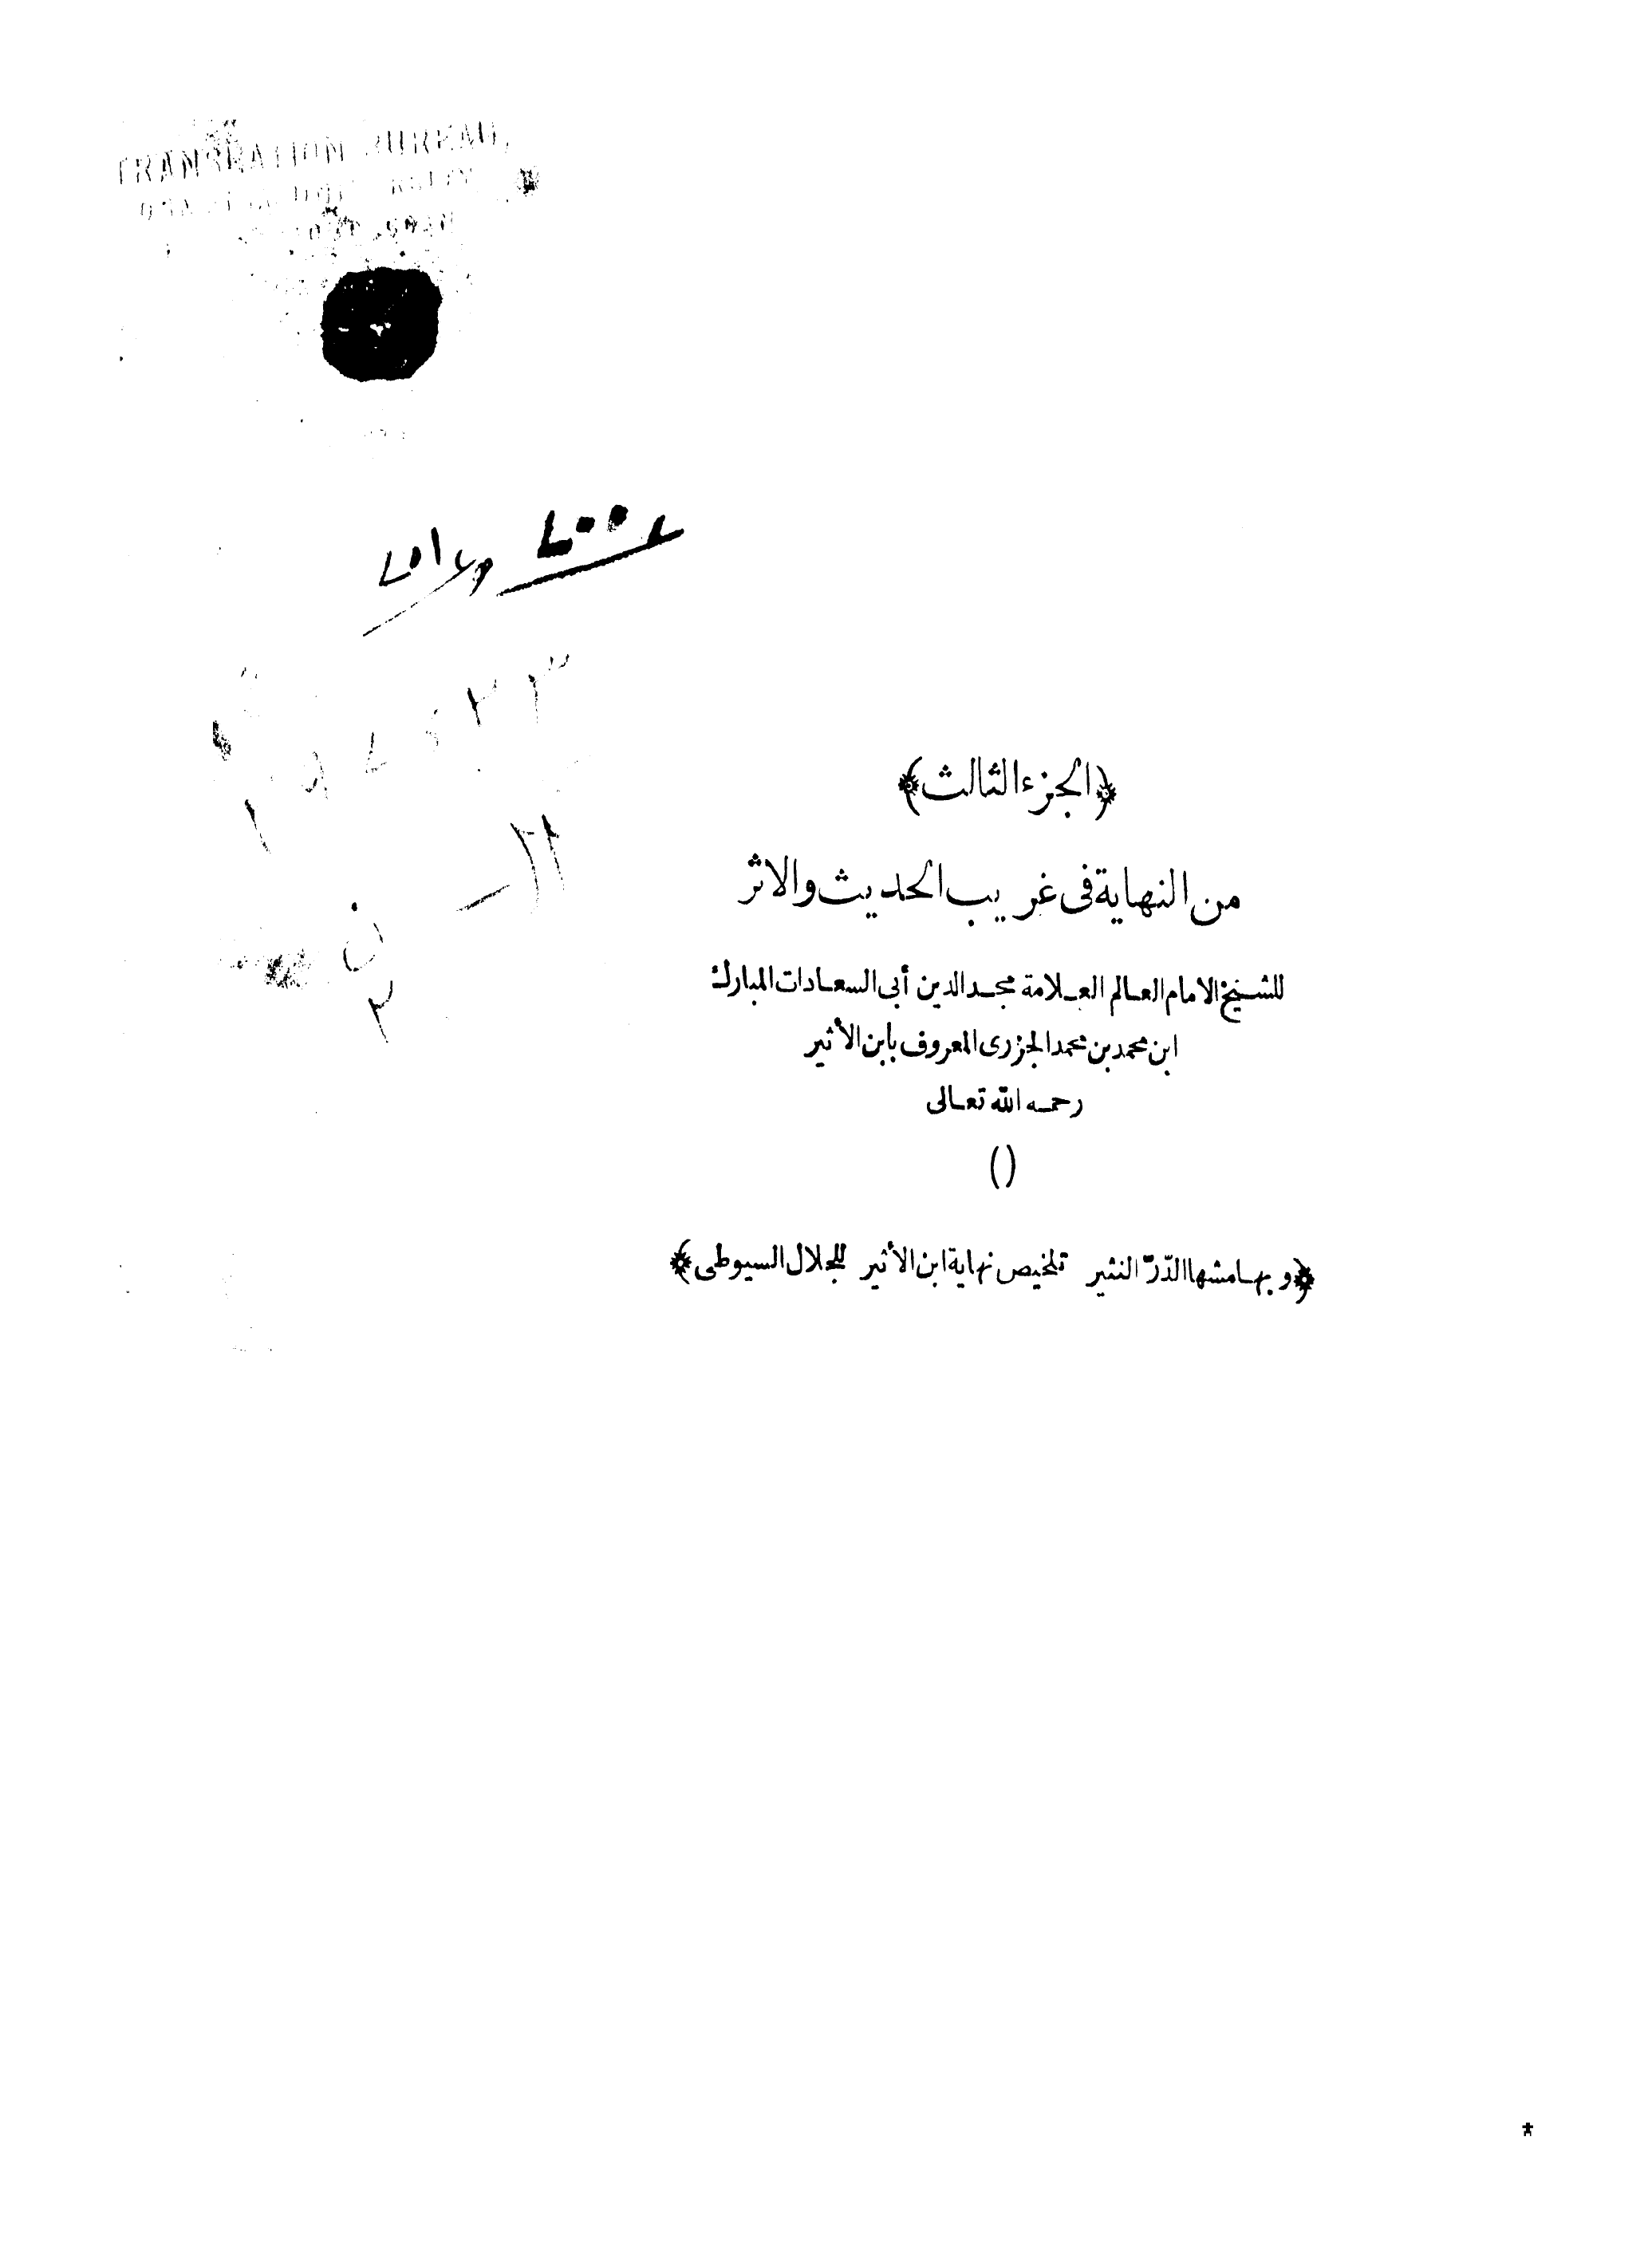 TRANSLATION BUREAU,
﴿الجزء الثالث﴾
من النهاية فى غريب الحديث والاثر
للشيخ الامام العالم العلامة مجد الدين أبى السعادات المبارك
ابن محمد بن محمد الجزرى المعروف بابن الأثير
رحمه الله تعالى
()
﴿وبهامشها الدّرّ النثير تلخيص نهاية ابن الأثير للجلال السيوطى﴾